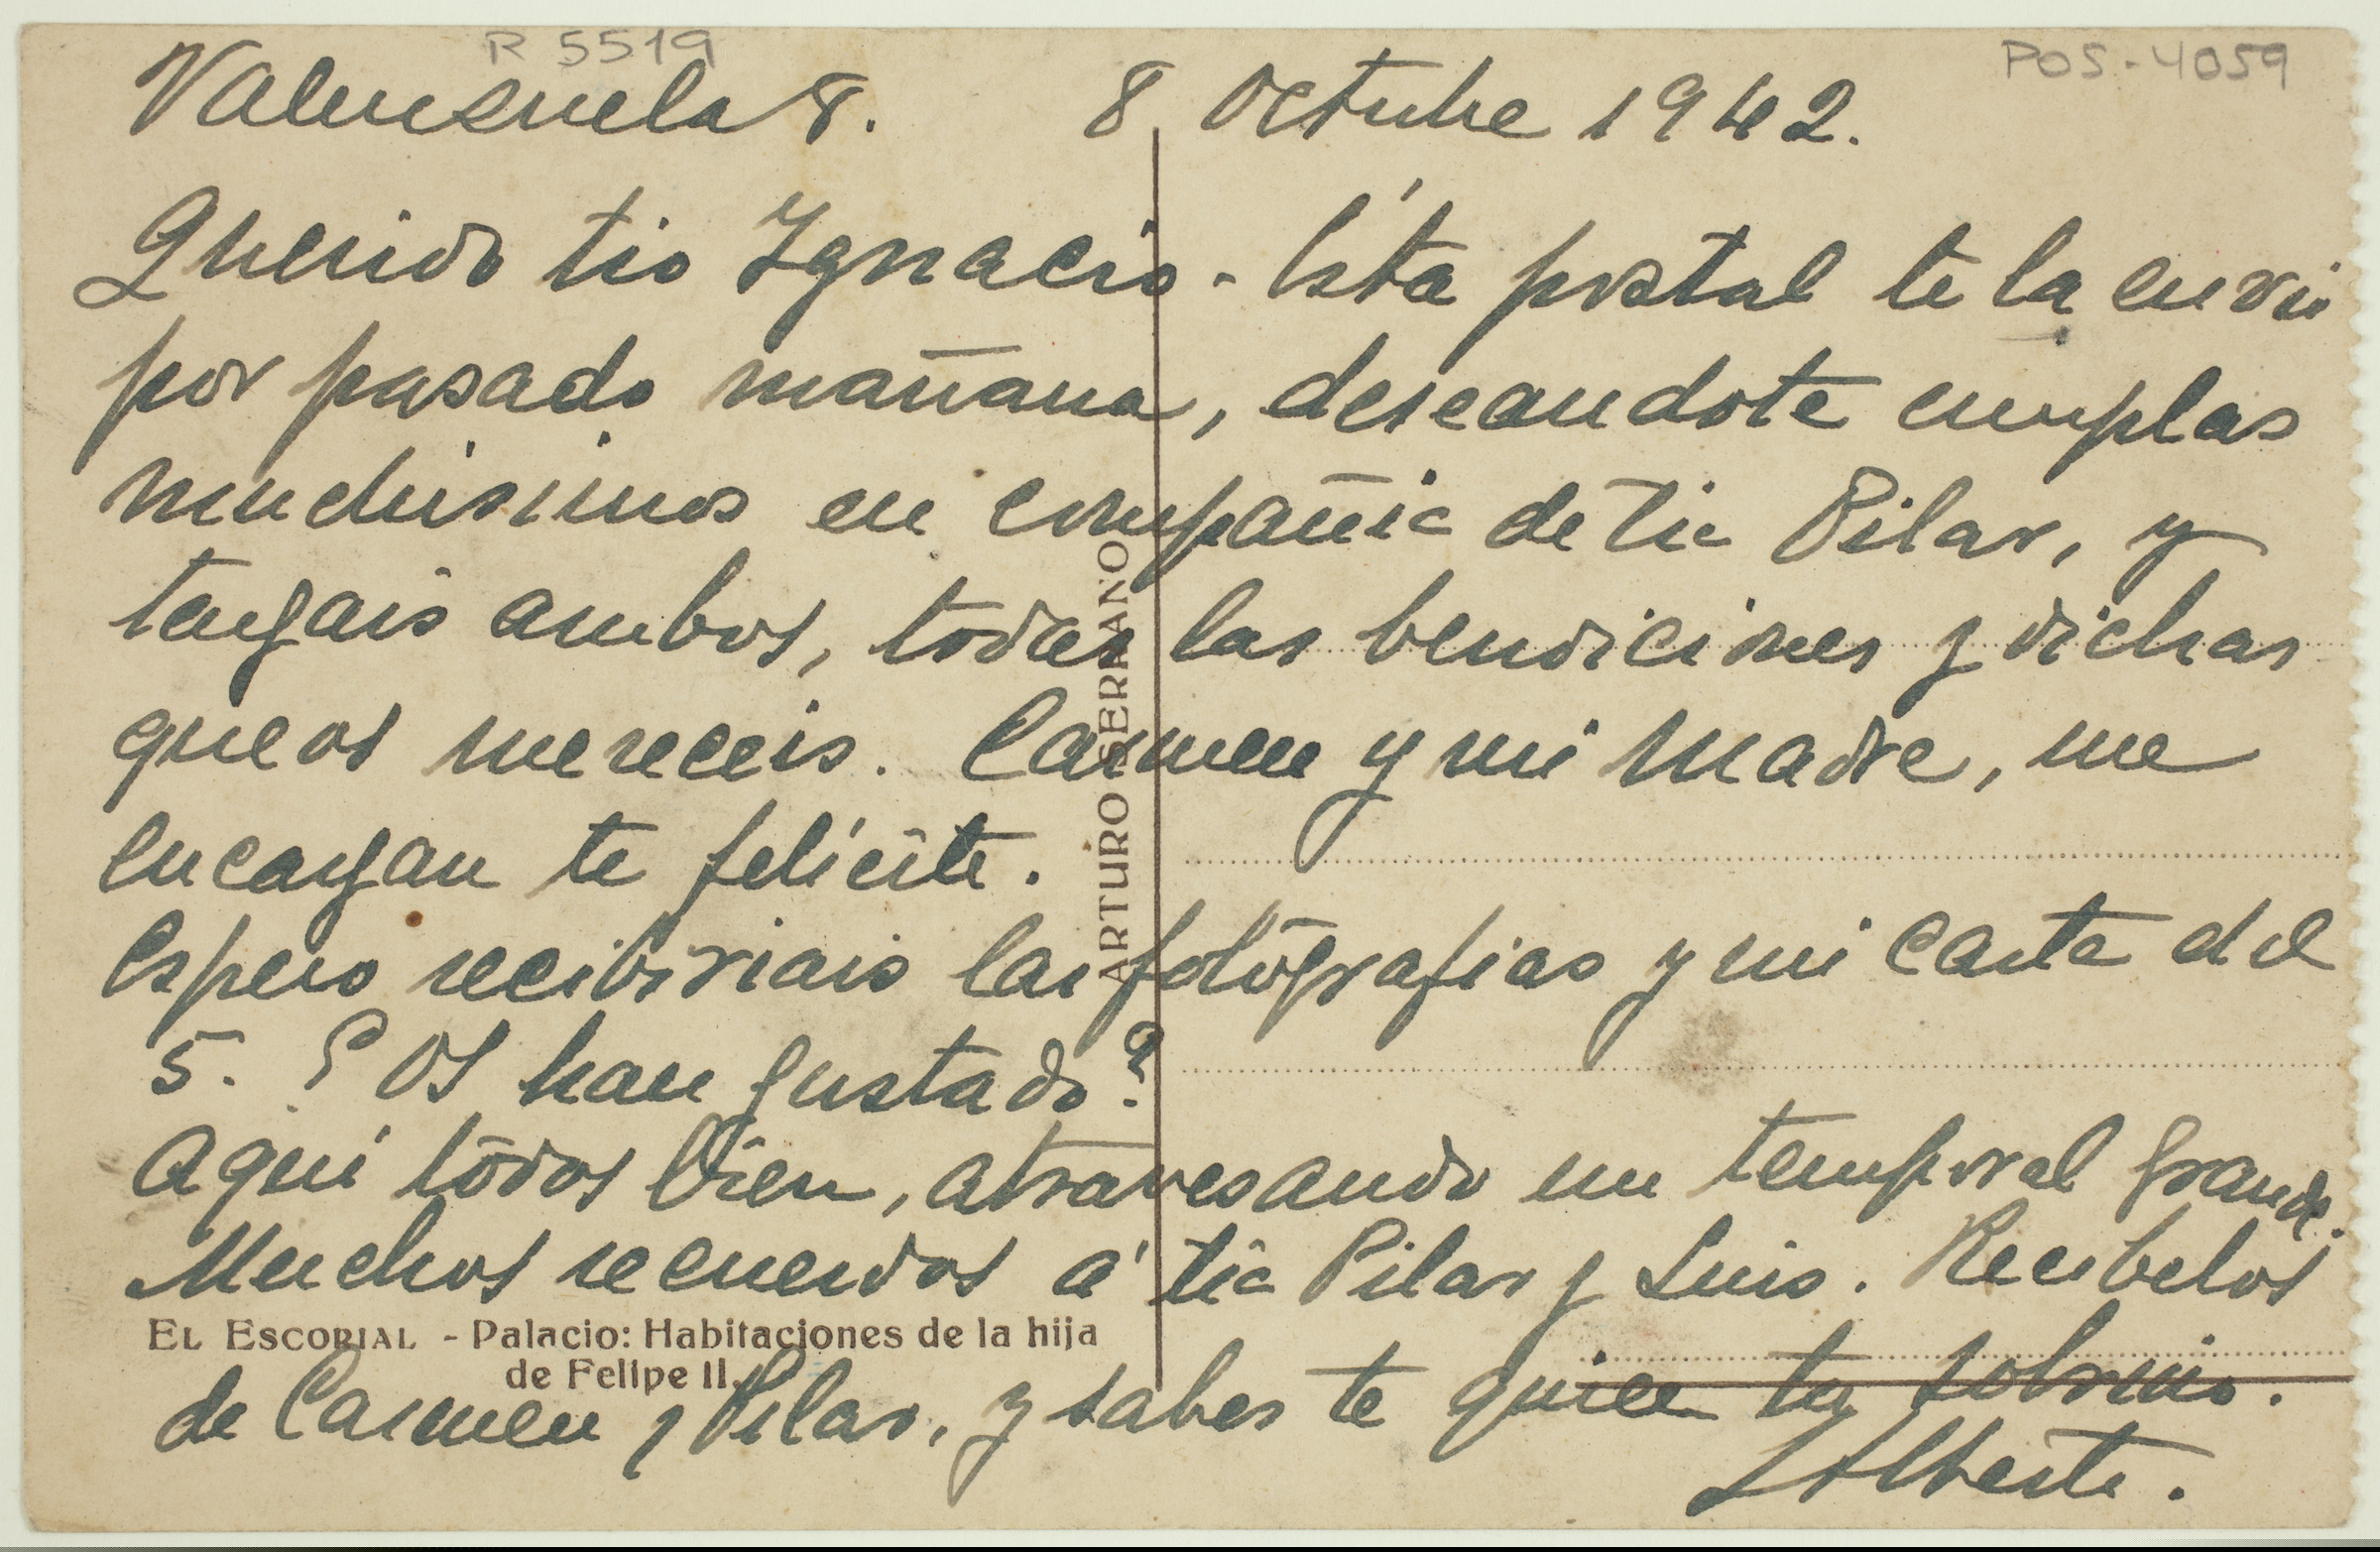 R 5519
POS-4059
Valenzuela 8. 8 Octubre 1942.
Querido tio Ignacio - Ésta postal te la envio
por pasado mañana, deseandote cumplas
muchisimos en compañia de tia Pilar, y
tengais ambos, todas las bendiciones y dichas
que os mereceis. Carmen y mi Madre, me
encargan te felicite.
Espero recibiriais las fotografias y mi carta del
5. ¿Os han gustado?
Aquí todos bien, atravesando un temporal grande.
Muchos recuerdos á tia Pilar y Luis. Recibelos
de Carmen y Pilar, y sabes te quiere tu sobrino.
Alberto.
ARTURO SERRANO
EL ESCORIAL - Palacio: Habitaciones de la hija
de Felipe II.